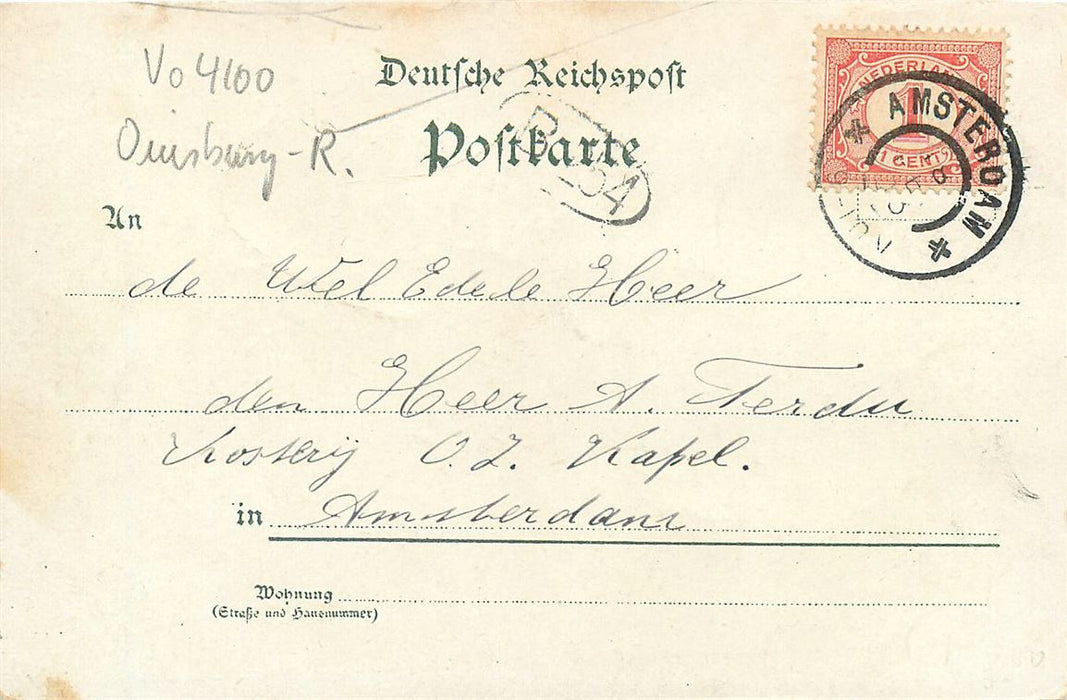 Vo 4100
Duisburg-R.
Deutsche Reichspost
Postkarte
NEDERLAND
1
1 CENT
AMSTERDAM
54
An
de Wel Edele Heer
den Heer A. Terdu
Kosterij O.Z. Kapel.
in Amsterdam
Wohnung
(Straße und Hausnummer)